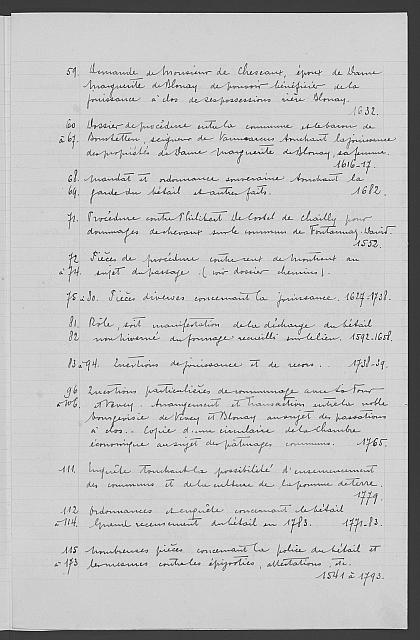 59. Demande de Monsieur de Cheseaux, époux de Dame
Marguerite de Blonay de pouvoir bénéficier de la
jouissance à clos de ses possessions rière Blonay.
1632.
60 Dossier de procédure entre la commune et le baron de
à 67. Bonstetten, seigneur de Vaumarcus touchant la jouissance
des propriétés de Dame Marguerite de Blonay, sa femme.
1616-17.
68. Mandat et ordonnance souveraine touchant la
69. garde du bétail et autres faits. 1682.
71. Procédure contre Philibert de Costel de Chailly pour
dommages de chevaux sur le commun de Fontannaz-David
1552.
72 Pièces de procédure contre ceux de Montreux au
à 74. sujet du passage. (voir dossier chemins).
75 à 80. Pièces diverses concernant la jouissance. 1627-1738.
81. Rôle, soit manifestation de la décharge du bétail
82 non hiverné du fromage recueilli sur le lieu. 1592-1658.
83 à 94. Questions de jouissance et de recors. 1738-39.
96 Questions particulières de communage avec La Tour
à 106. et Vevey. Arrangement et transaction entre la noble
bourgeoisie de Vevey et Blonay au sujet des passations
à clos. Copie d'une circulaire de la Chambre
économique au sujet des pâturages communs. 1765.
111. Enquête touchant la possibilité d'ensemencement
des communs et de la culture de la pomme de terre.
1779.
112 Ordonnances et enquête concernant le bétail
à 114. Grand recensement du bétail en 1783. 1771-83.
115 Nombreuses pièces concernant la police du bétail et
à 173 les mesures contre les épizooties, attestations, etc.
1541 à 1793.